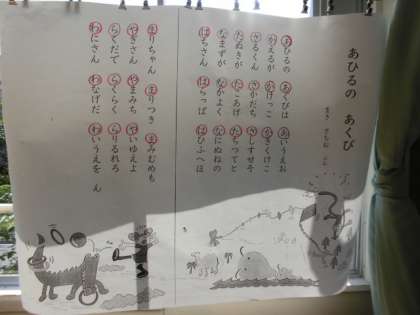 あひるの あくび
あひるの あくびは あいうえお
かえるが かけっこ かきくけこ
さるくん さかだち さしすせそ
たぬきが たこあげ たちつてと
なまずが なかよく なにぬねの
はちさん はらっぱ はひふへほ
まりちゃん まりつき まみむめも
やぎさん やまみち やいゆえよ
らくだで らくらく らりるれろ
わにさん わなげだ わいうえを ん